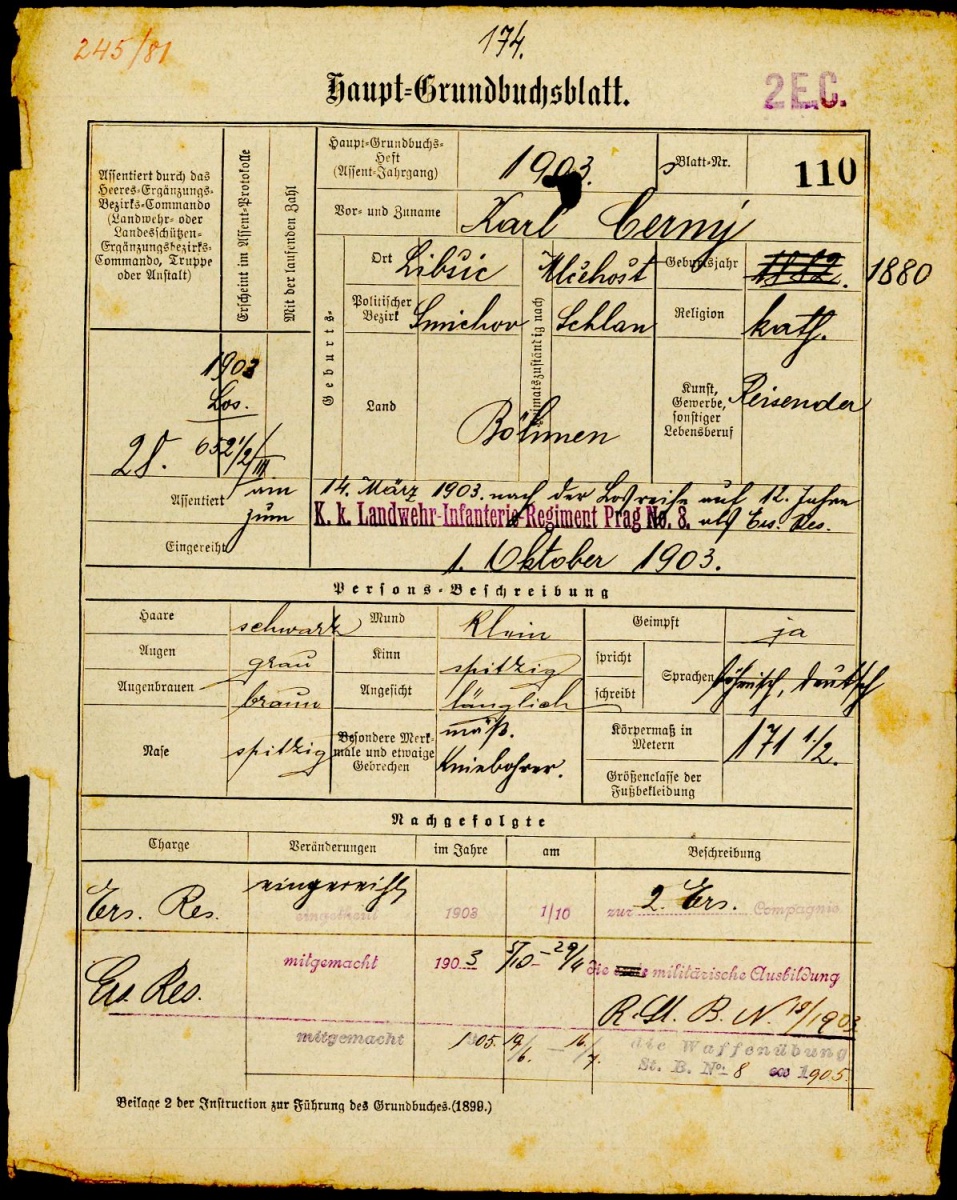 245/81
174.
Haupt-Grundbuchsblatt.
2 E.C.
Assentiert durch das
Heeres-Ergänzungs-
Bezirks-Commando
(Landwehr- oder
Landesschützen-
Ergänzungsbezirks-
Commando, Truppe
oder Anstalt)
Erscheint im Assent-Protokolle
Mit der laufenden Zahl
1903
Los.
28. 652 1/2/III
Haupt-Grundbuchs-
Heft
(Assent-Jahrgang)
1903.
Blatt-Nr. 110
Vor- und Zuname Karl Černý
Geburts-
Ort Libšic
Heimatszuständig nach
Mlčehost
Geburtsjahr 1880
Politischer
Bezirk Smichov Schlan
Religion kath.
Land Böhmen
Kunst,
Gewerbe,
sonstiger
Lebensberuf
Reisender
Assentiert am 14. März 1903. nach der Losreihe auf 12. Jahre
zum K. k. Landwehr-Infanterie-Regiment Prag No. 8. als Ers. Res.
Eingereiht 1. Oktober 1903.
Persons-Beschreibung
Haare schwarz Mund klein Geimpft ja
Augen grau Kinn spitzig
spricht
schreibt
Sprachen böhmisch, deutsch
Augenbrauen braun Angesicht länglich
Nase spitzig
Besondere Merk-
male und etwaige
Gebrechen
mäß.
Kniebohrer.
Körpermaß in
Metern
171 1/2.
Größenclasse der
Fußbekleidung
Nachgefolgte
Charge Veränderungen im Jahre am Beschreibung
Ers. Res. eingereiht
eingetheilt 1903 1/10 zur 2. Ers. Compagnie
Ers. Res. mitgemacht 1903 5/10 – 29/11 die militärische Ausbildung
R. St. B. N. 19/1903
mitgemacht 1905 19/6. – 16/7. die Waffenübung
St. B. No: 8 ex 1905.
Beilage 2 der Instruction zur Führung des Grundbuches. (1899.)